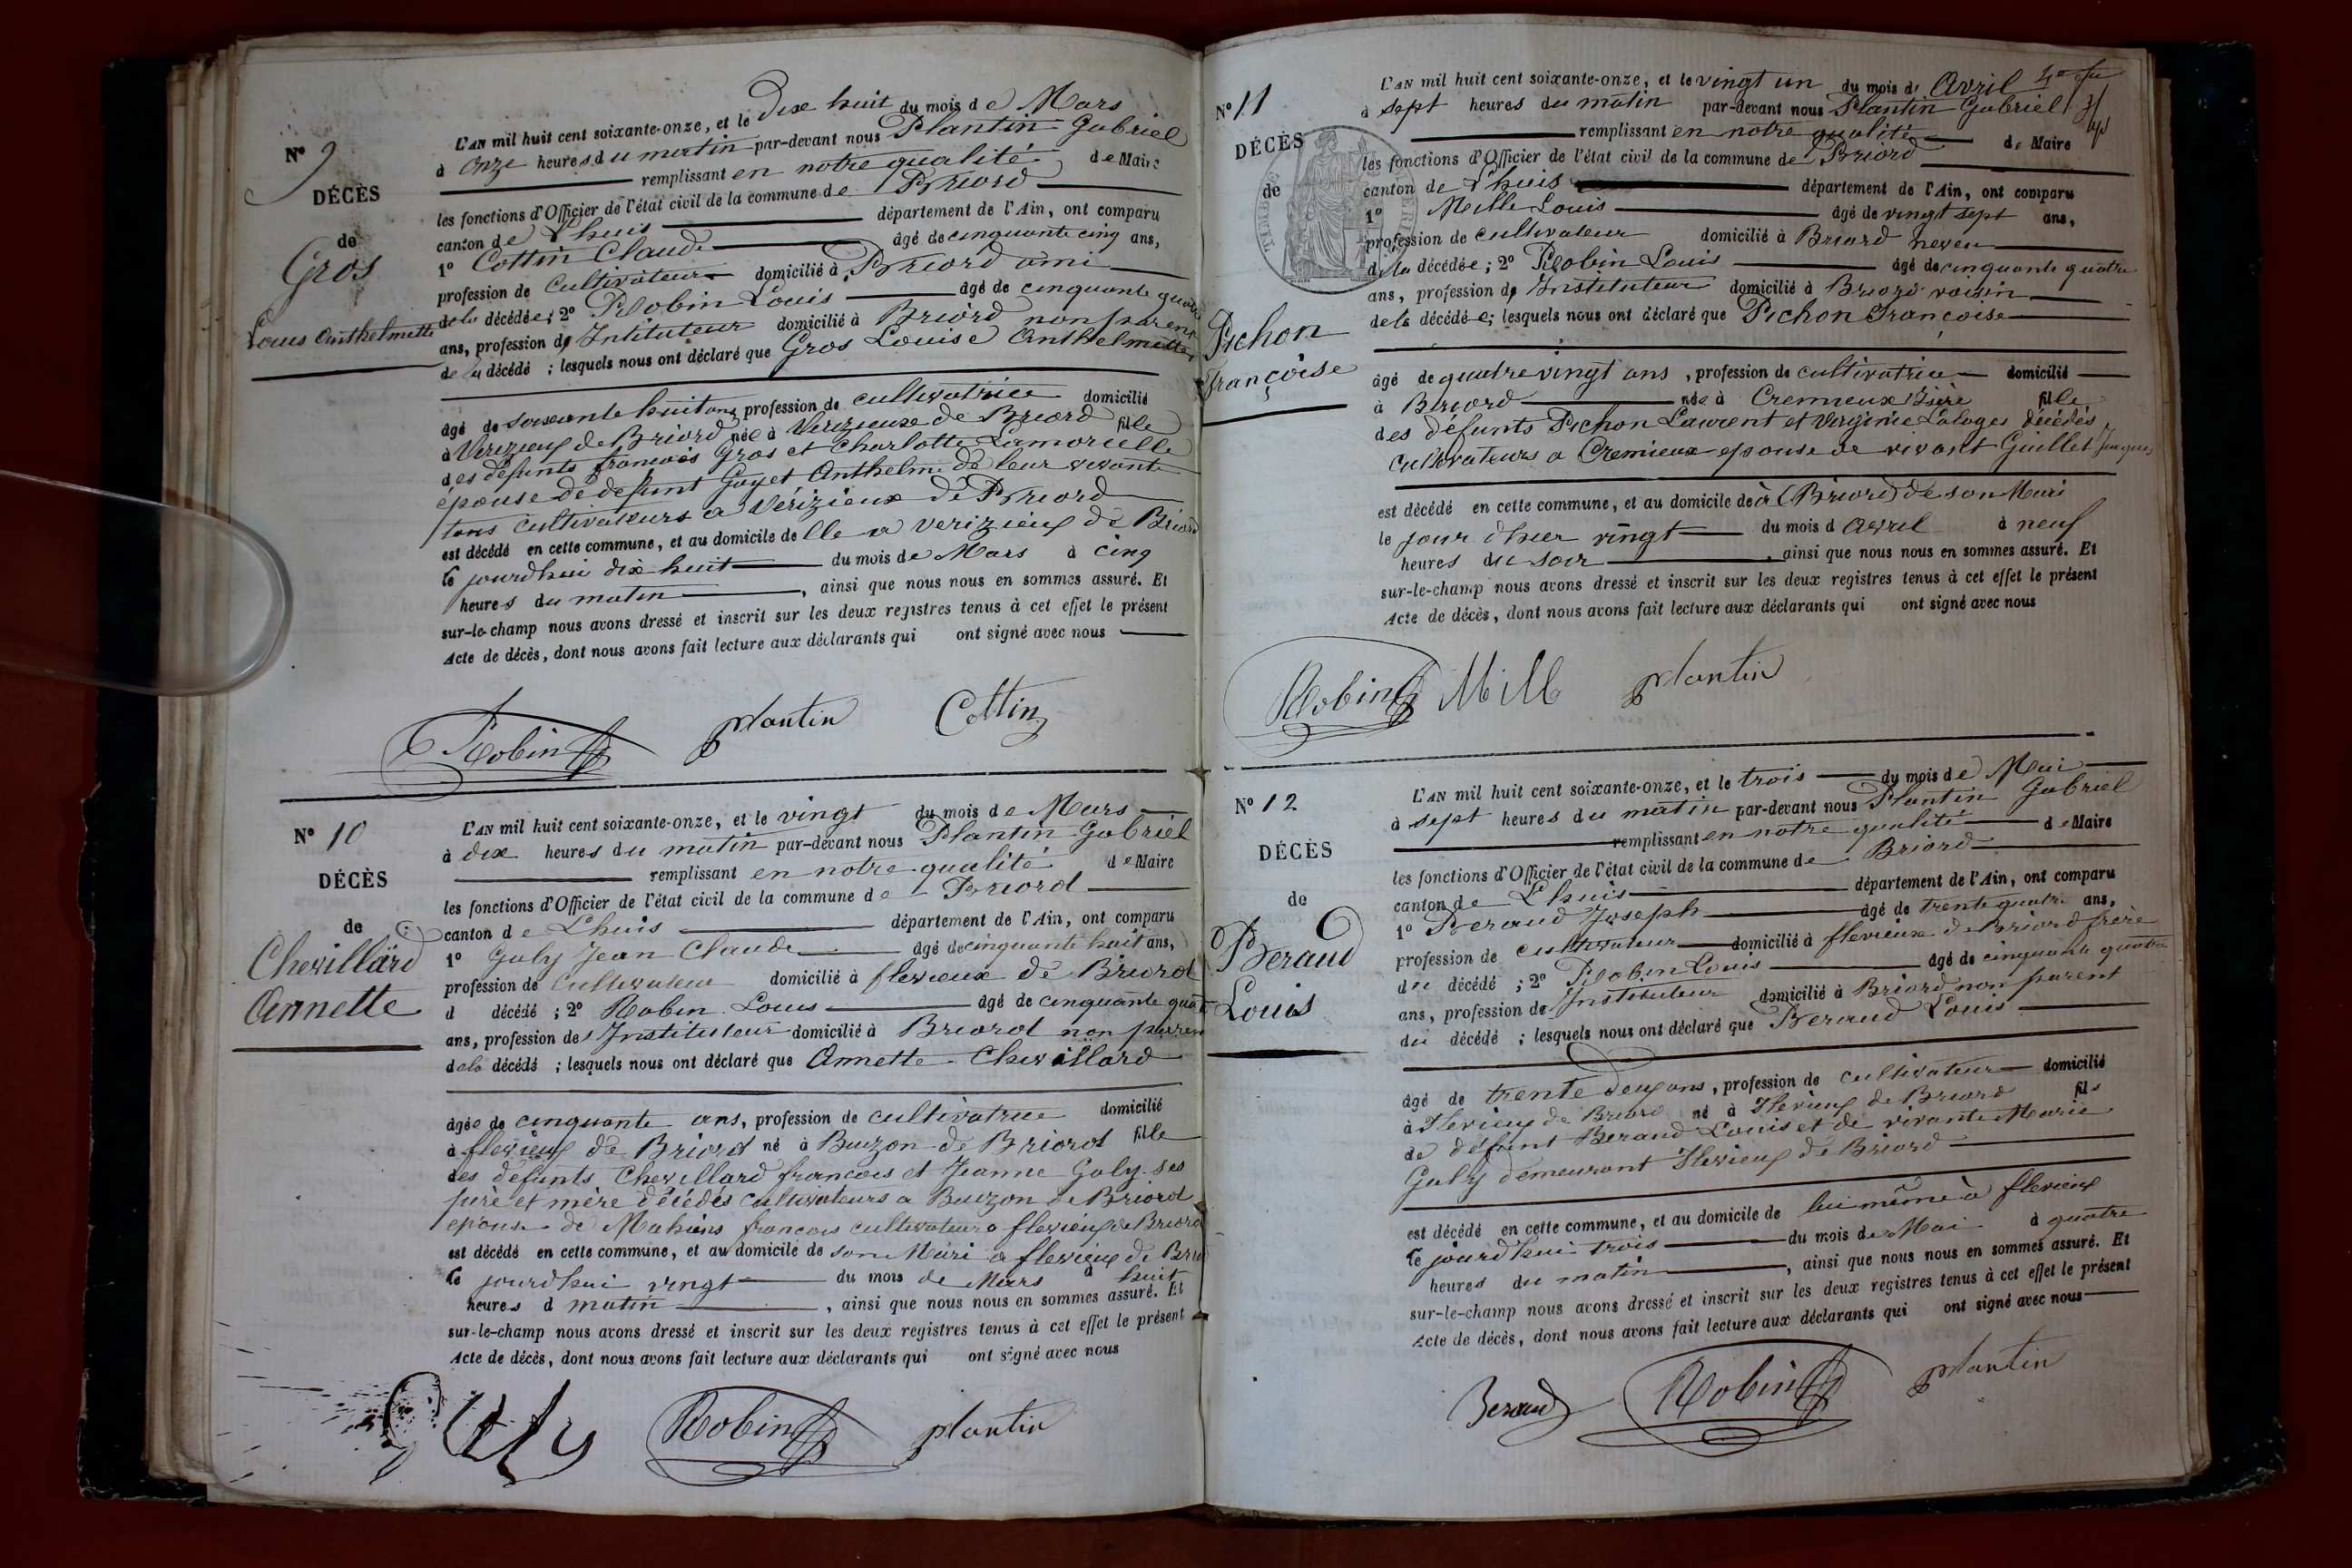 N° 9
DÉCÈS
de
Gros
Louis Anthelmette
L'AN mil huit cent soixante-onze, et le Dix huit du mois de Mars
à onze heures du matin par-devant nous Plantin Gabriel
remplissant en notre qualité de Maire
les fonctions d'Officier de l'état civil de la commune de Briord
canton de Lhuis département de l'Ain, ont comparu
1° Cottin Claude âgé de cinquante cinq ans,
profession de Cultivateur domicilié à Briord ami
de la décédée; 2° Robin Louis âgé de cinquante quatre
ans, profession d' Intituteur domicilié à Briord non parent
de la décédé ; lesquels nous ont déclaré que Gros Louise Anthelmette
âgé de soixante huit ans profession de cultivatrice domicilié
à Verizieux de Briord née à Verizieux de Briord fille
des défunts francois Gros et Charlotte Lamorielle
épouse de defunt Guyet Anthelme de leur vivant
tous cultivateurs a Vérizieux de Briord
est décédé en cette commune, et au domicile de lle a verizieux de Briord
le jourdhui dix huit du mois de Mars à cinq
heures du matin , ainsi que nous nous en sommes assuré. Et
sur-le-champ nous avons dressé et inscrit sur les deux registres tenus à cet effet le présent
Acte de décès, dont nous avons fait lecture aux déclarants qui ont signé avec nous
Robin plantin Cottin
N° 10
DÉCÈS
de
Chevillard
Annette
L'AN mil huit cent soixante-onze, et le vingt du mois de Mars
à dix heures du matin par-devant nous Plantin Gabriel
remplissant en notre qualité de Maire
les fonctions d'Officier de l'état civil de la commune de Briord
canton de Lhuis département de l'Ain, ont comparu
1° Guly Jean Claude âgé de cinquante huit ans,
profession de Cultivateur domicilié à flevieux de Briord
d décédé ; 2° Robin Louis âgé de cinquante quat
ans, profession des Instituteur domicilié à Briord non paren
de la décédé ; lesquels nous ont déclaré que Annette Chevillard
âgée de cinquante ans, profession de cultivatrice domicilié
à flevieux de Briord né à Buizon de Briord fille
des defunts Chevillard francois et Jeanne Guly ses
père et mère décédés cultivateurs a Buizon de Briord
epouse de francois cultivateur a flevieux de Briord
est décédé en cette commune, et au domicile de son Mari a flevieux de Brio
le jourdhui vingt du mois de Mars à huit
heures d matin , ainsi que nous nous en sommes assuré. Et
sur-le-champ nous avons dressé et inscrit sur les deux registres tenus à cet effet le présent
Acte de décès, dont nous avons fait lecture aux déclarants qui ont signé avec nous
Guly Robin plantin
N° 11
DÉCÈS
de
Pichon
Françoise
L'AN mil huit cent soixante-onze, et le vingt un du mois d' Avril
à sept heures du matin par-devant nous Plantin Gabriel
remplissant en notre qualité de Maire
les fonctions d'Officier de l'état civil de la commune de Briord
canton de Lhuis département de l'Ain, ont comparu
1° Mille Louis âgé de vingt sept ans,
profession de cultivateur domicilié à Briord neveu
de la décédée ; 2° Robin Louis âgé de cinquante quatre
ans, profession d' Instituteur domicilié à Briord voisin
de la décédée; lesquels nous ont déclaré que Pichon Françoise
âgé de quatre vingt ans , profession de cultivatrice domicilié
à Briord née à Cremieux Isère fille
des défunts Pichon Laurent et Virginie Laloges décédés
cultivateurs a Cremieux epouse de vivant Guillet Jacques
est décédé en cette commune, et au domicile de à (Briord) de son Mari
le jour d'hier vingt du mois d avril à neuf
heures du soir , ainsi que nous nous en sommes assuré. Et
sur-le-champ nous avons dressé et inscrit sur les deux registres tenus à cet effet le présent
Acte de décès, dont nous avons fait lecture aux déclarants qui ont signé avec nous
Robin Mille plantin
N° 12
DÉCÈS
de
Beraud
Louis
L'AN mil huit cent soixante-onze, et le trois du mois de Mai
à sept heures du matin par-devant nous Plantin Gabriel
remplissant en notre qualité de Maire
les fonctions d'Officier de l'état civil de la commune de Briord
canton de Lhuis département de l'Ain, ont comparu
1° Beraud Joseph âgé de trente quatre ans,
profession de cultivateur domicilié à flevieux de Briord frère
du décédé ; 2° Robin Louis âgé de cinquante quatre
ans, profession de Instituteur domicilié à Briord non parent
du décédé ; lesquels nous ont déclaré que Beraud Louis
âgé de trente deux ans, profession de cultivateur domicilié
à Flevieux de Briord né à Flevieux de Briord fils
de défunt Beraud Louis et de vivante Marie
Guly demeurant Flevieux de Briord
est décédé en cette commune, et au domicile de lui même à flevieux
le jourdhui trois du mois de Mai à quatre
heures du matin , ainsi que nous nous en sommes assuré. Et
sur-le-champ nous avons dressé et inscrit sur les deux registres tenus à cet effet le présent
Acte de décès, dont nous avons fait lecture aux déclarants qui ont signé avec nous
Beraud Robin plantin